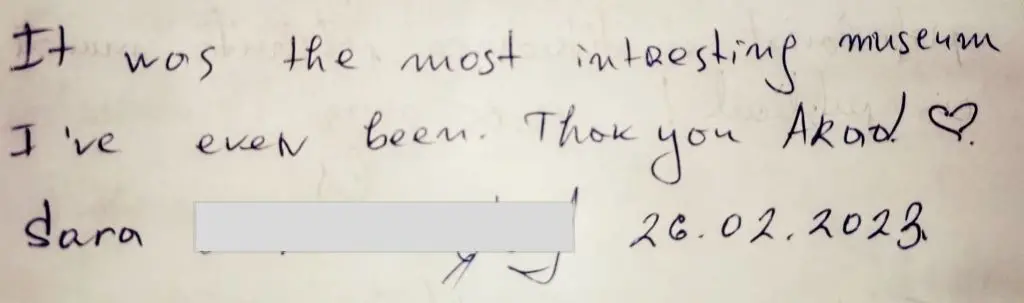 It was the most intresting museum
I've even been. Thok you Akad ♡.
Sara 26.02.2023.